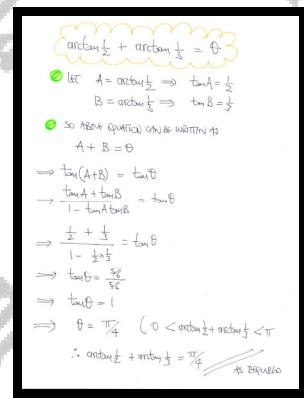 arctan 1/2 + arctan 1/3 = θ
LET A = arctan 1/2 ⟹ tanA = 1/2
B = arctan 1/3 ⟹ tanB = 1/3
SO ABOVE EQUATION CAN BE WRITTEN AS
A + B = θ
⟹ tan(A+B) = tanθ
⟹ (tanA + tanB)/(1 - tanA tanB) = tanθ
⟹ (1/2 + 1/3)/(1 - 1/2 × 1/3) = tanθ
⟹ tanθ = (5/6)/(5/6)
⟹ tanθ = 1
⟹ θ = π/4 (0 < arctan 1/2 + arctan 1/3 < π
∴ arctan 1/2 + arctan 1/3 = π/4
AS REQUIRED